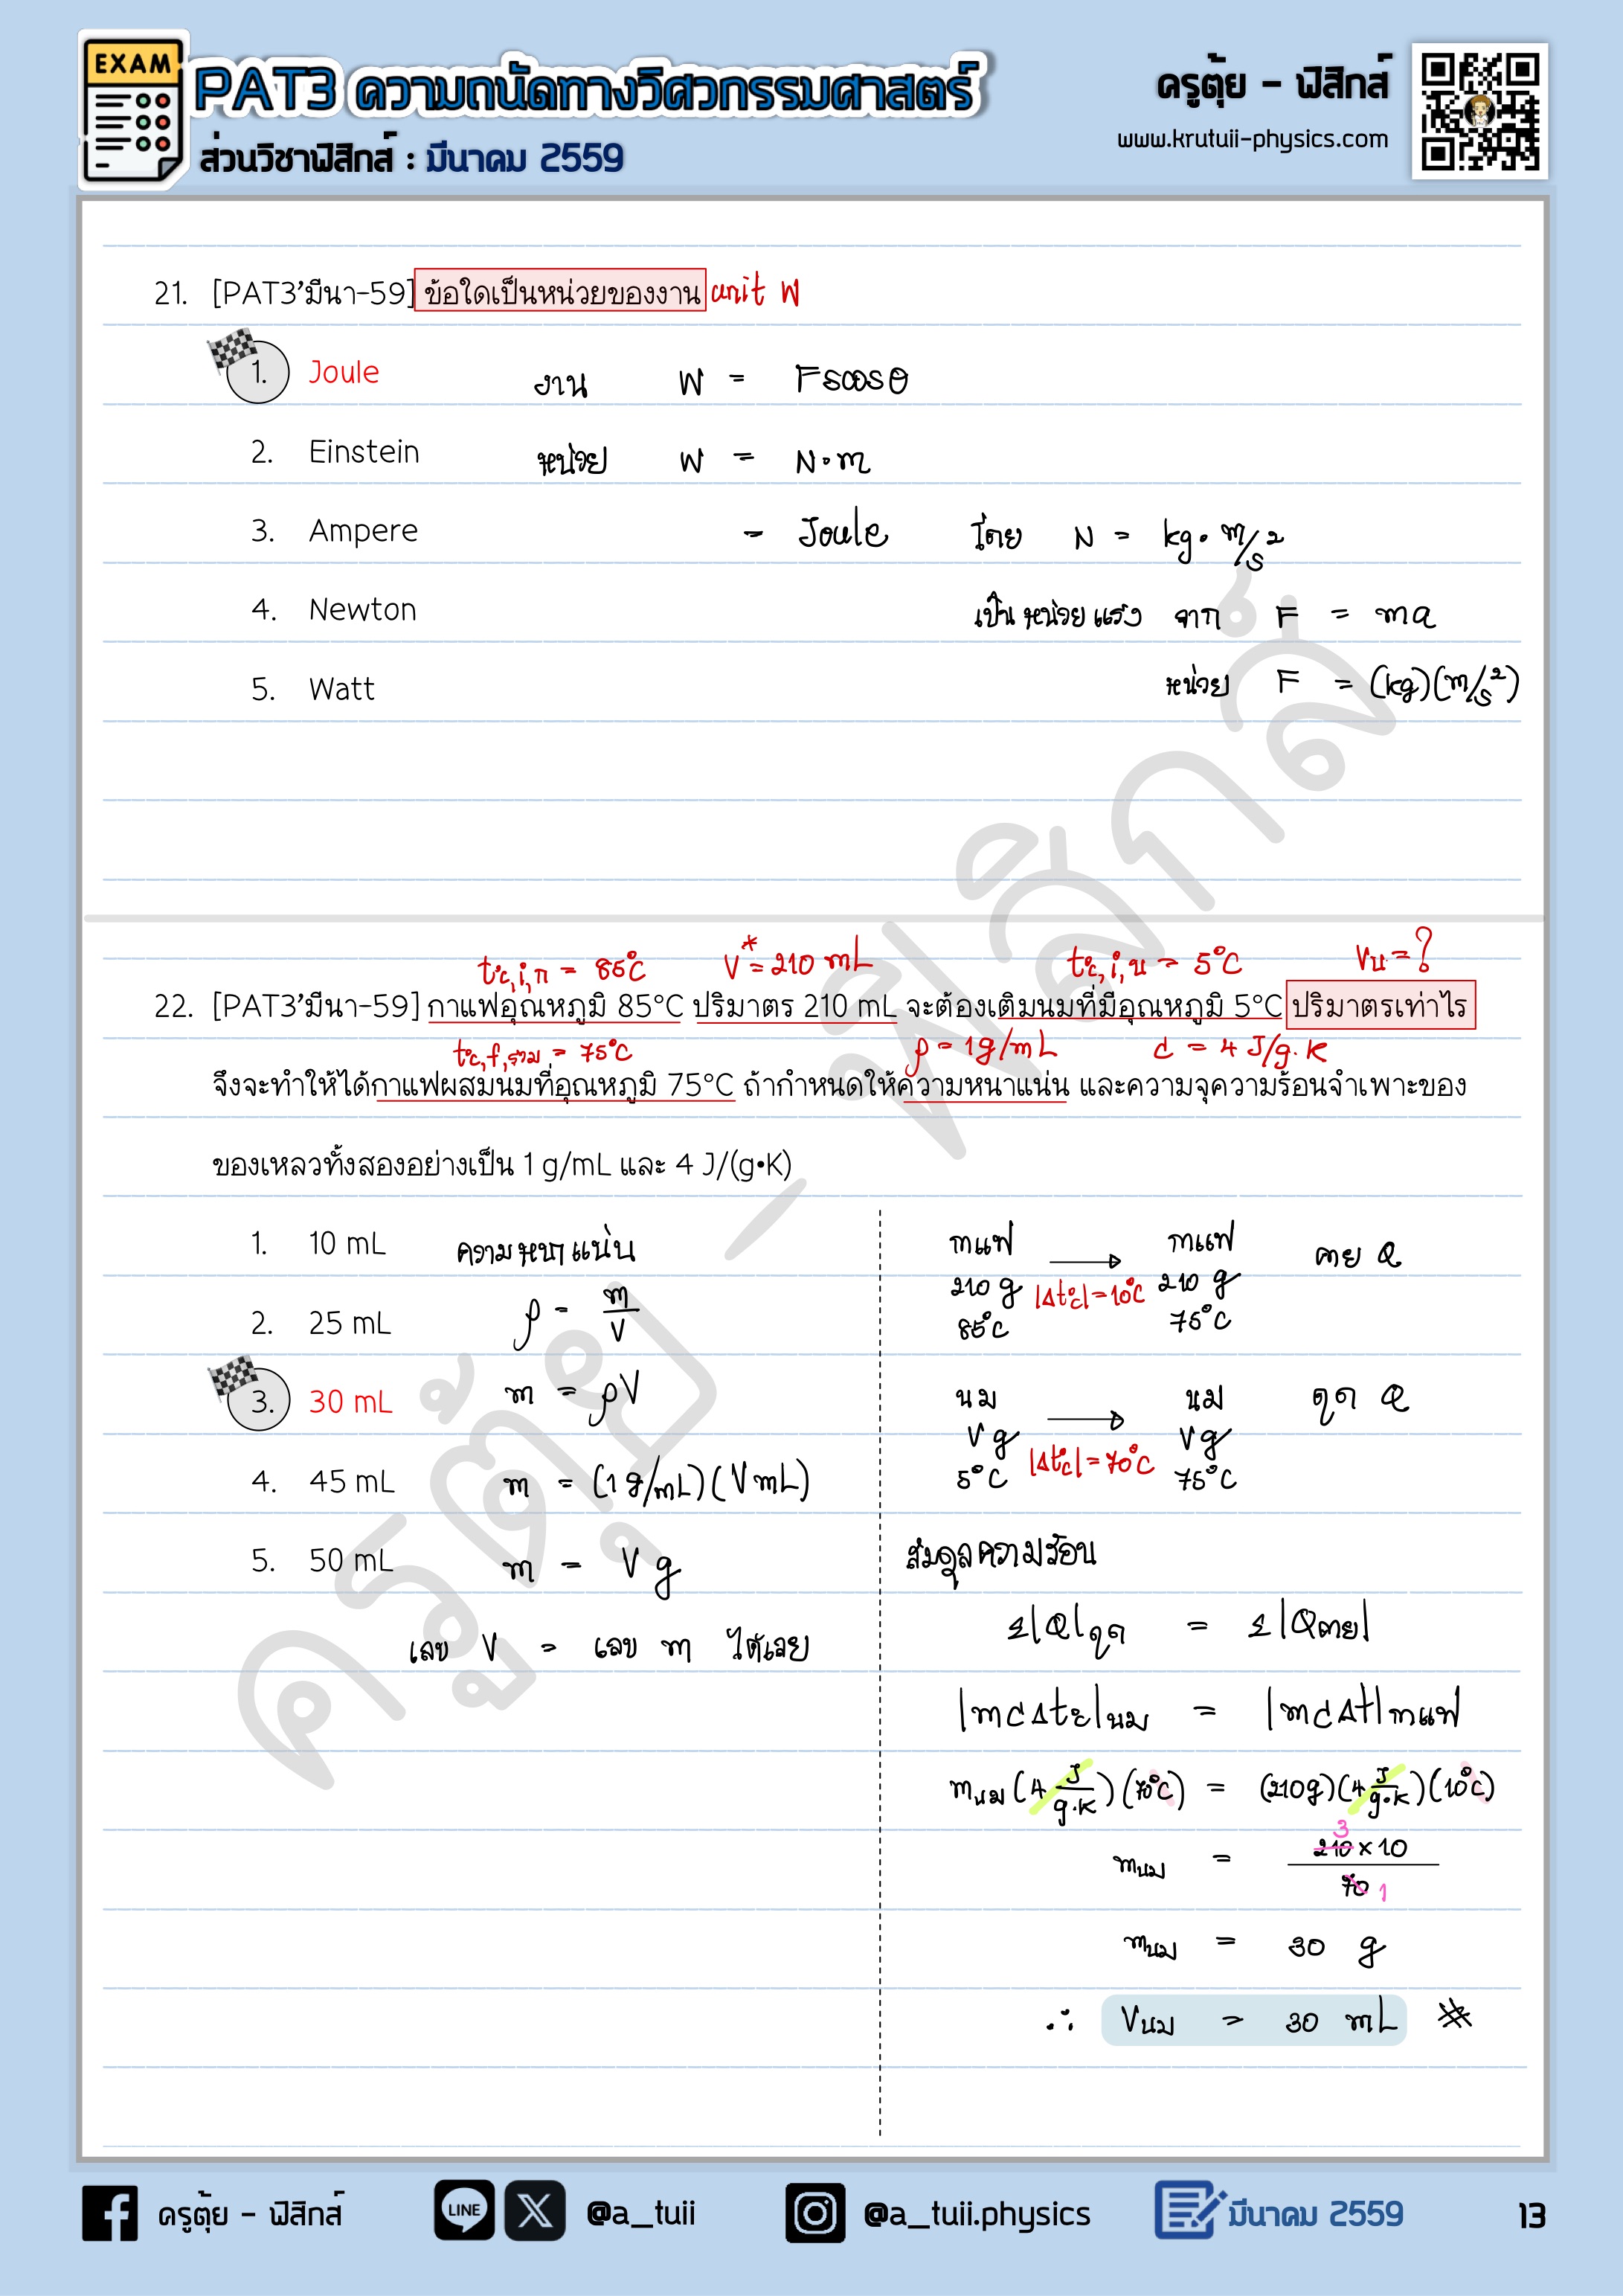 EXAM
PAT3 ความถนัดทางวิศวกรรมศาสตร์
ส่วนวิชาฟิสิกส์ : มีนาคม 2559
ครูตุ้ย - ฟิสิกส์
www.krutuii-physics.com
21. [PAT3'มีนา-59] ข้อใดเป็นหน่วยของงาน unit W
1. Joule งาน W = Fscosθ
2. Einstein หน่วย W = N·m
3. Ampere = Joule โดย N = kg·m/s²
4. Newton เป็นหน่วยแรง จาก F = ma
5. Watt หน่วย F = (kg)(m/s²)
t°c,i,ก = 85°C V* = 210 mL t°c,i,น = 5°C Vน = ?
22. [PAT3'มีนา-59] กาแฟอุณหภูมิ 85°C ปริมาตร 210 mL จะต้องเติมนมที่มีอุณหภูมิ 5°C ปริมาตรเท่าไร
t°c,f,รวม = 75°C ρ = 1g/mL c = 4 J/g·K
จึงจะทำให้ได้กาแฟผสมนมที่อุณหภูมิ 75°C ถ้ากำหนดให้ความหนาแน่น และความจุความร้อนจำเพาะของ
ของเหลวทั้งสองอย่างเป็น 1 g/mL และ 4 J/(g•K)
1. 10 mL ความหนาแน่น
2. 25 mL ρ = m/V
3. 30 mL m = ρV
4. 45 mL m = (1 g/mL)(V mL)
5. 50 mL m = V g
เลข V = เลข m ได้เลย
กาแฟ → กาแฟ คาย Q
210 g |Δt°c| = 10°C 210 g
85°C 75°C
นม → นม ดูด Q
V g |Δt°c| = 70°C V g
5°C 75°C
สมดุลความร้อน
Σ|Q|ดูด = Σ|Qคาย|
|mcΔt°c|นม = |mcΔt|กาแฟ
mนม (4 J/g·K)(70°C) = (210g)(4 J/g·K)(10°C)
3
mนม = 210 × 10 / 70 1
mนม = 30 g
∴ Vนม = 30 mL #
ครูตุ้ย - ฟิสิกส์
ครูตุ้ย - ฟิสิกส์
LINE
@a_tuii
@a_tuii.physics
มีนาคม 2559
13